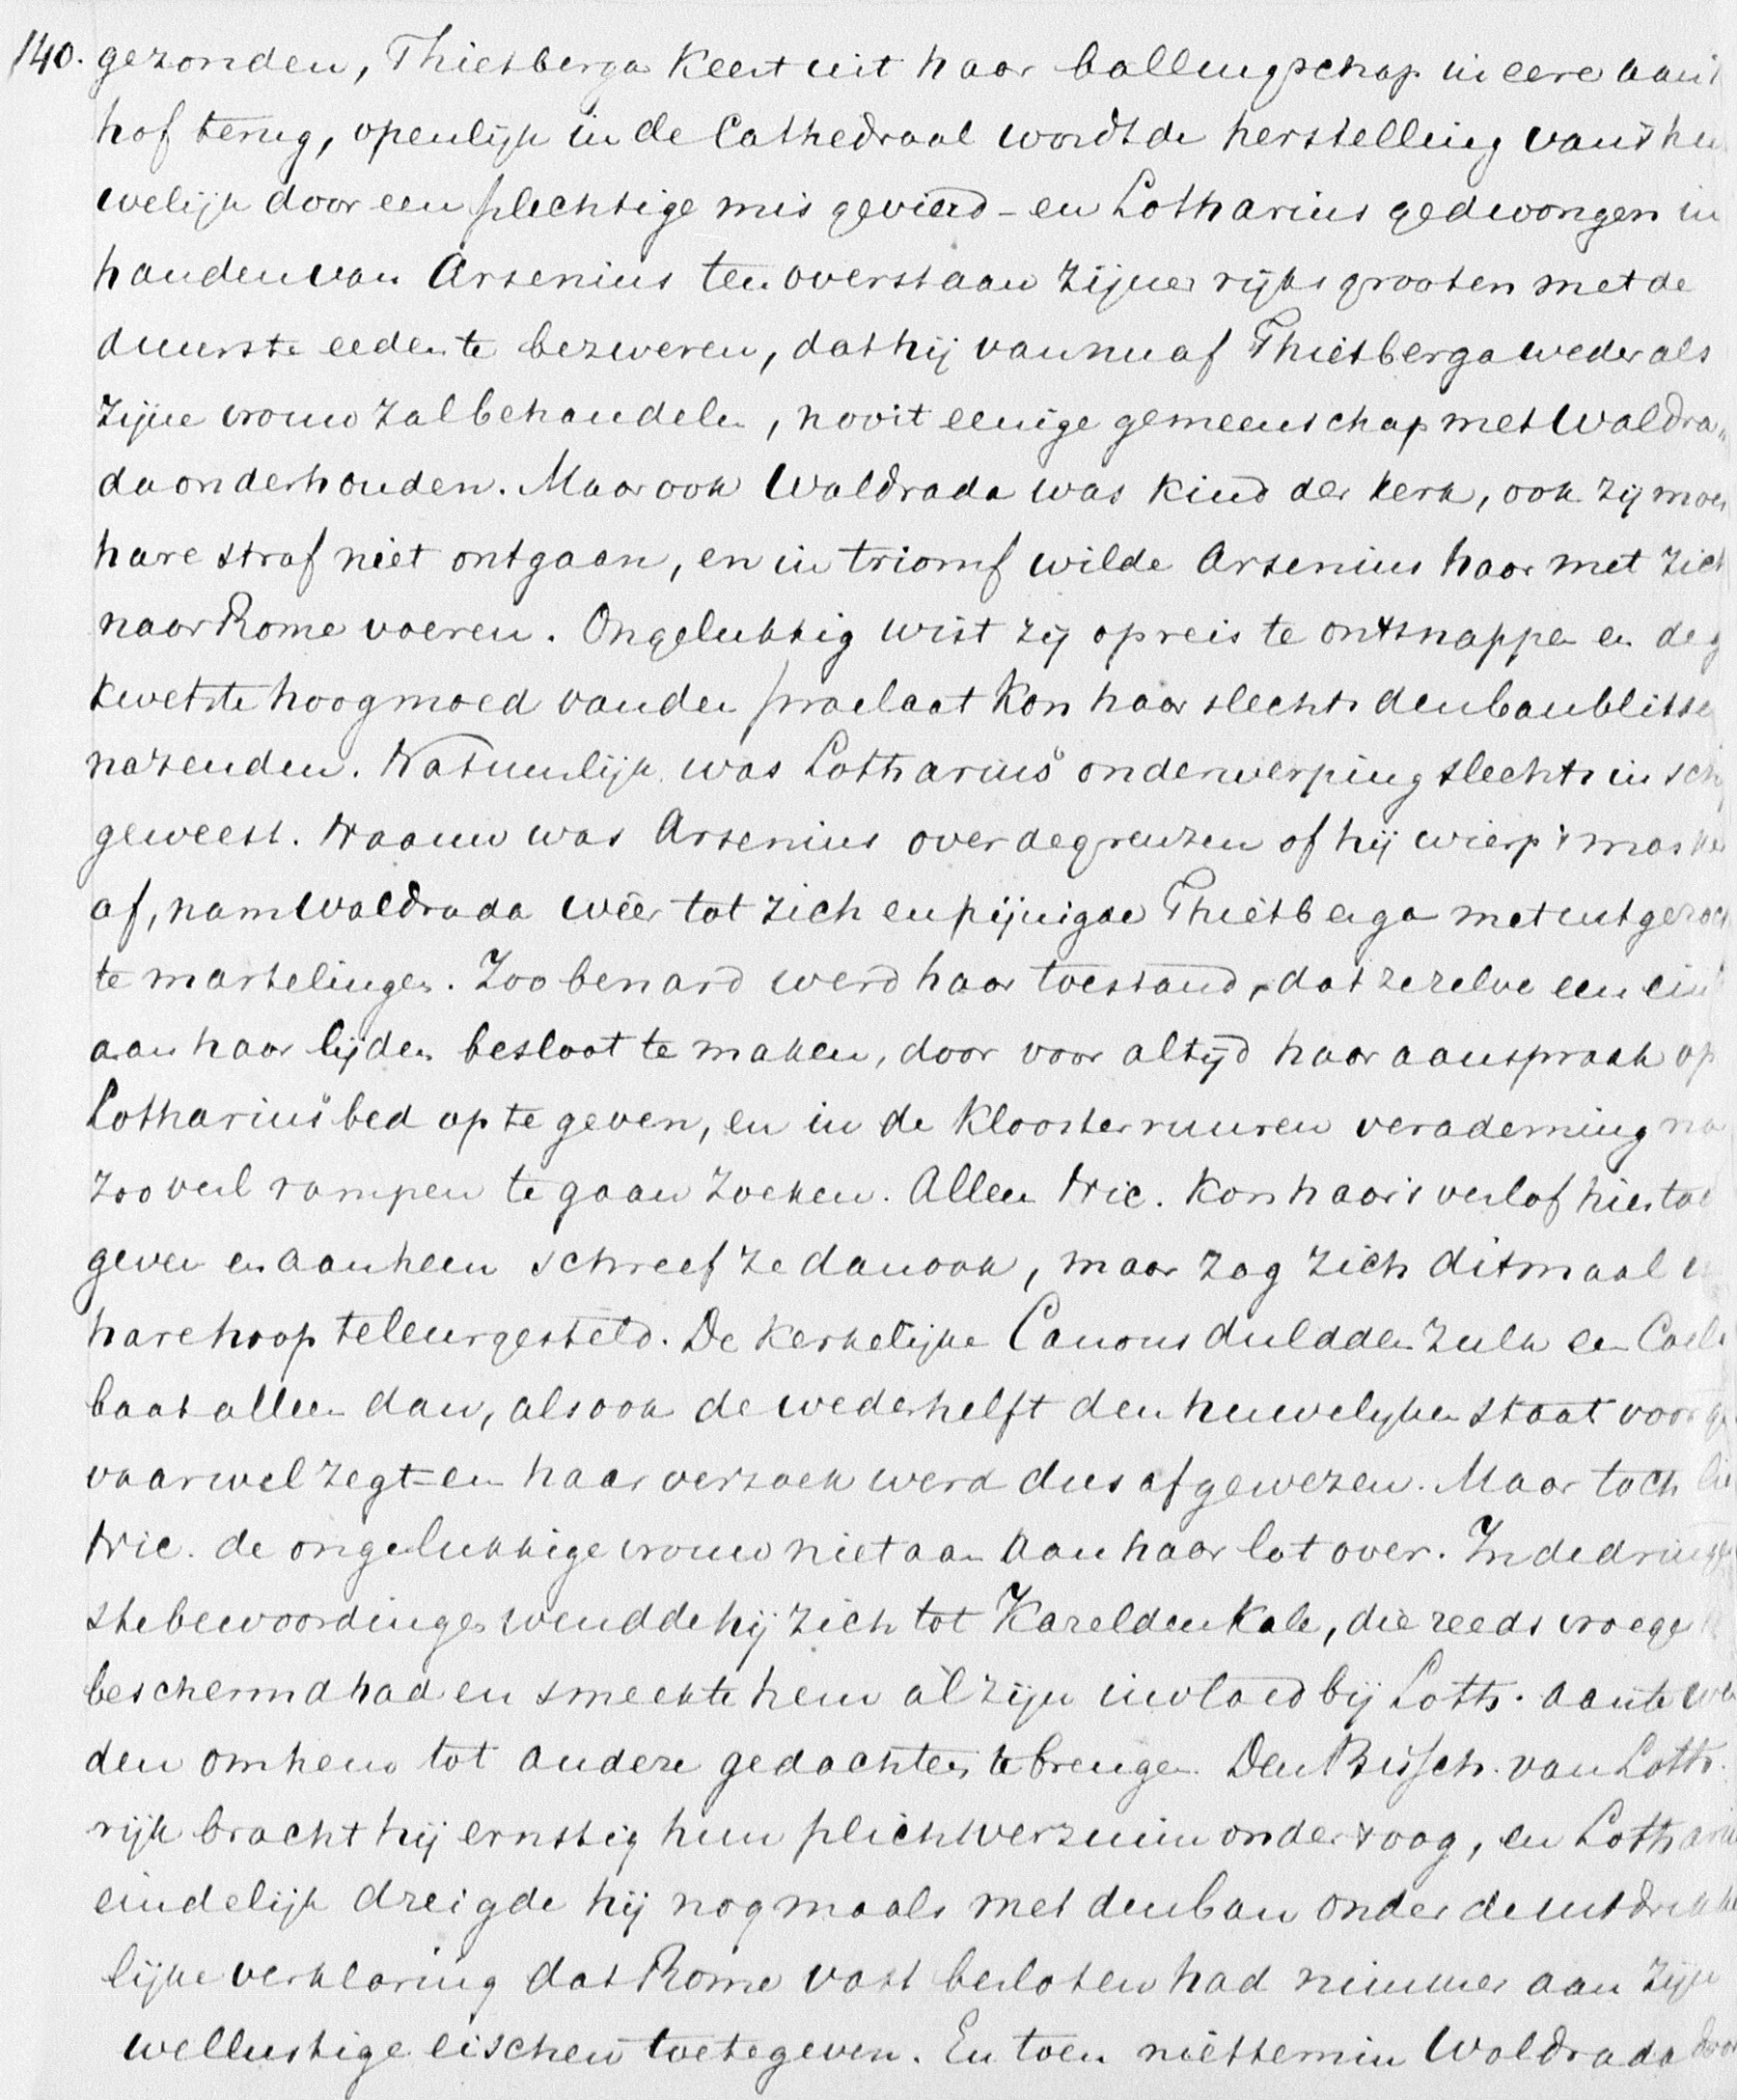 140. gezonden, Thietberga keert uit haar ballingschap in eere aan 't
hof terug, openlijk in de Cathedraal wordt de herstelling van 't hu
welijk door een plechtige mis gevierd – en Lotharius gedwongen in
handen van Arsenius ten overstaan zijner rijksgrooten met de
duurste eeden te bezweren, dat hij van nu af Thietberga weder als
zijne vrouw zal behandelen, nooit eenige gemeenschap met Waldra„
da onderhouden. Maar ook Waldrada was kind der kerk, ook zij moest
hare straf niet ontgaan, en in triomf wilde Arsenius haar met zich
naar Rome voeren. Ongelukkig wist zij op reis te ontsnappen en de g
kwetste hoogmoed van den praelaat kon haar slechts den banbliksem
nazenden. Natuurlijk was Lotharius' onderwerping slechts in schijn
geweest. Naauw was Arsenius over de grenzen of hij wierp 't masker
af, nam Waldrada wêer tot zich en pijnigde Thietberga met uitgezoch
te martelingen. Zoo benard werd haar toestand, dat ze zelve een eind
aan haar lijden besloot te maken, door voor altijd haar aanspraak op
Lotharius' bed op te geven, en in de kloostermuren verademing na
zooveel rampen te gaan zoeken. Alleen Nic. kon haar 's verlof hiertoe
geven en aan hem schreef ze dan ook, maar zag zich ditmaal in
hare hoop teleurgesteld. De kerkelijke Canons duldden zulk een Coeli
baat alleen dan, als ook de wederhelft den huwelijken staat voor g
vaarwel zegt – en haar verzoek werd dus afgewezen. Maar toch liet
Nic. de ongelukkige vrouw niet aan aan haar lot over. In de dringend
ste bewoordingen wendde hij zich tot Karel den Kale, die reeds vroeger
beschermd had en smeekte hem al zijn invloed bij Loth. aan te wen
den om hem tot andere gedachten te brengen. Den Bissch. van Loth.
rijk bracht hij ernstig hun plichtverzuim onder 't oog, en Lotharius
eindelijk dreigde hij nogmaals met den ban onder de uitdrukke
lijke verklaring dat Rome vast besloten had nimmer aan zijn
wellustige eischen toe te geven. En toen niettemin Waldrada door